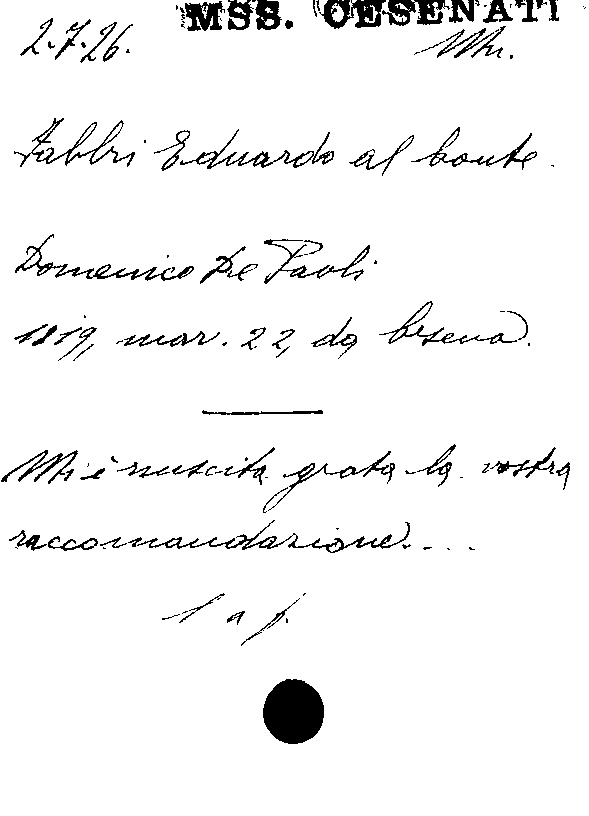 MSS. CESENATI
2.7.26. Mr.
Fabbri Eduardo al Conte
Domenico De Paoli
1819, mar. 22, da Cesena.
Mi è riuscita grata la vostra
raccomandazione....
1 a f.